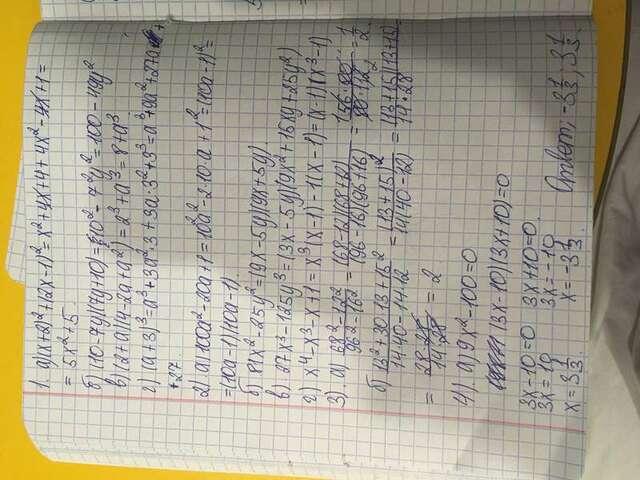 1. а)(x+2)²+(2x-1)²=x²+4x+4+4x²-4x+1=
= 5x²+5
б)(10-7y)(7y+10)=10²-7²y²=100-49y²
в)(2+a)(4-2a+a²)=2³+a³=8+a³
г)(a+3)³=a³+3a²·3+3a·3²+3³=a³+9a²+27a+
+27
2) а)100a²-20a+1=10²a²-2·10·a+1²=(10a-1)²=
=(10a-1)(10a-1)
б) 81x²-25y²=(9x-5y)(9x+5y)
в) 27x³-125y³=(3x-5y)(9x²+15xy+25y²)
г) x⁴-x³-x+1=x³(x-1)-1(x-1)=(x-1)(x³-1)
3) а) (68²-12²)/(96²-16²)=((68-12)(68+12))/((96-16)(96+16))=(56·80)/(80·112)=1/2
б) (13²+30·13+15²)/(14·40-14·12)=(13+15)²/(14(40-12))=((13+15)(13+15))/(14·28)=
= (28·28)/(14·28) = 2
4) а)9x²-100=0
(3x-10)(3x+10)=0
3x-10=0 3x+10=0
3x=10 3x=-10
x=3 1/3 x=-3 1/3 Ответ: -3 1/3; 3 1/3.